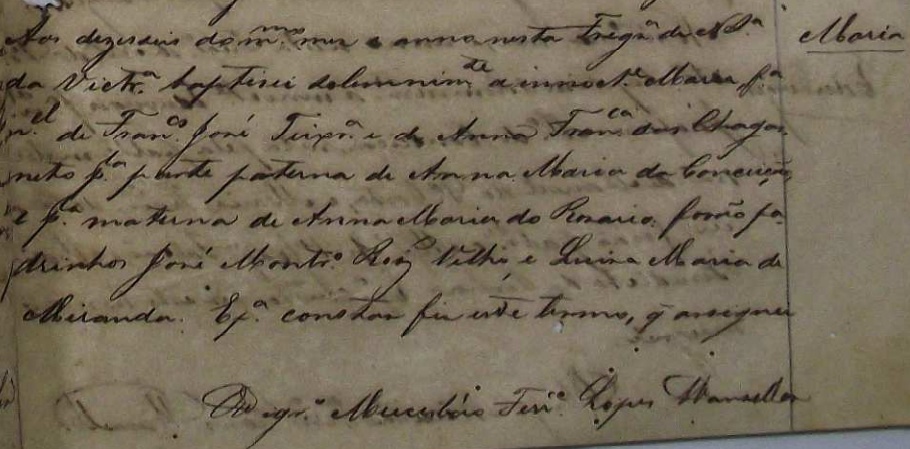 Aos dezeseis do m.mo mez e anno nesta Freg.a de N. S.a
Maria
da Vict.a baptisei solemnim.te a innoc.te Maria f.a
n.el de Fran.co José Teixr.a e de Anna Fran.ca das Chagas
neto p.la parte paterna de Anna Maria da Conceição,
e p.a materna de Anna Maria do Rosario. forão pa-
drinhos José Mont.ro Roiz Velho, e Luiza Maria de
Miranda. E p.a constar fiz este termo, q̃ assignei
Lopes